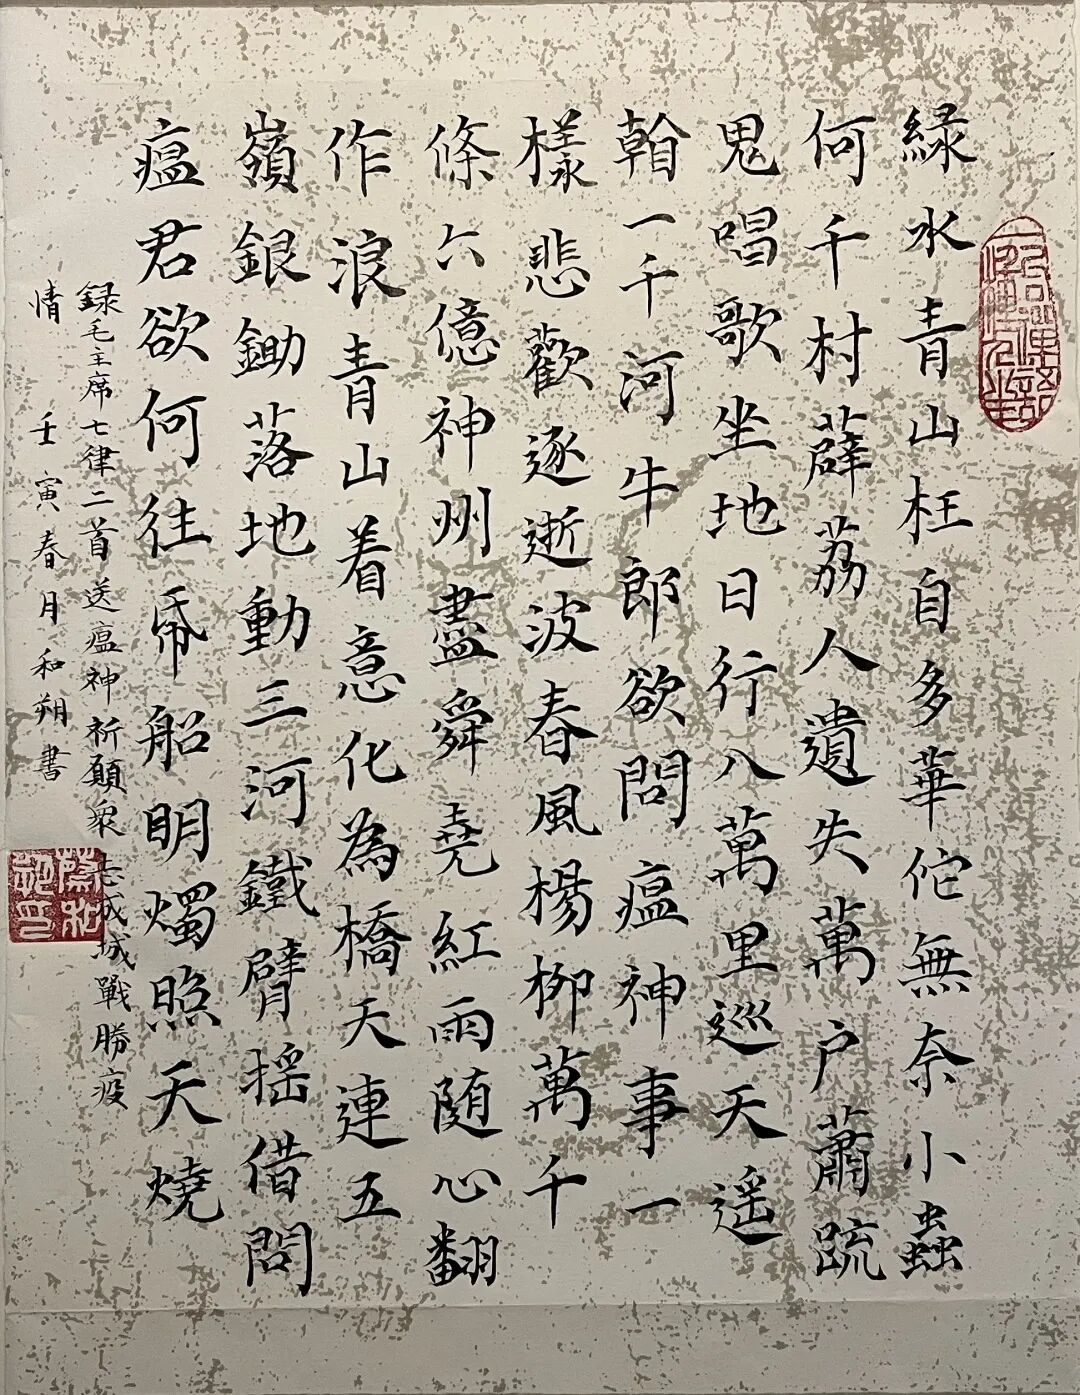 緑水青山枉自多華佗無奈小蟲
何千村薜荔人遺失萬户蕭疏
鬼唱歌坐地日行八萬里巡天遥
㪇一千河牛郎欲問瘟神事一
樣悲歡逐逝波春風楊柳萬千
條六億神州盡舜堯紅雨随心翻
作浪青山着意化為橋天連五
嶺銀鋤落地動三河鐵臂摇借問
瘟君欲何往帋船明燭照天燒
録毛主席七律二首送瘟神祈願衆志成城戰勝疫
情 壬寅春月和朔書